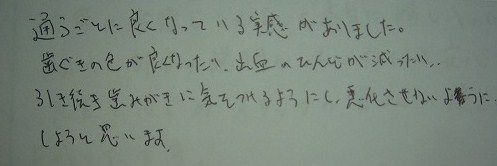 通うごとに良くなっている実感がありました。
歯ぐきの色が良くなったり、出血のひんどが減ったり、、
引き続き歯みがきに気をつけるようにし、悪化させないように
しようと思います。